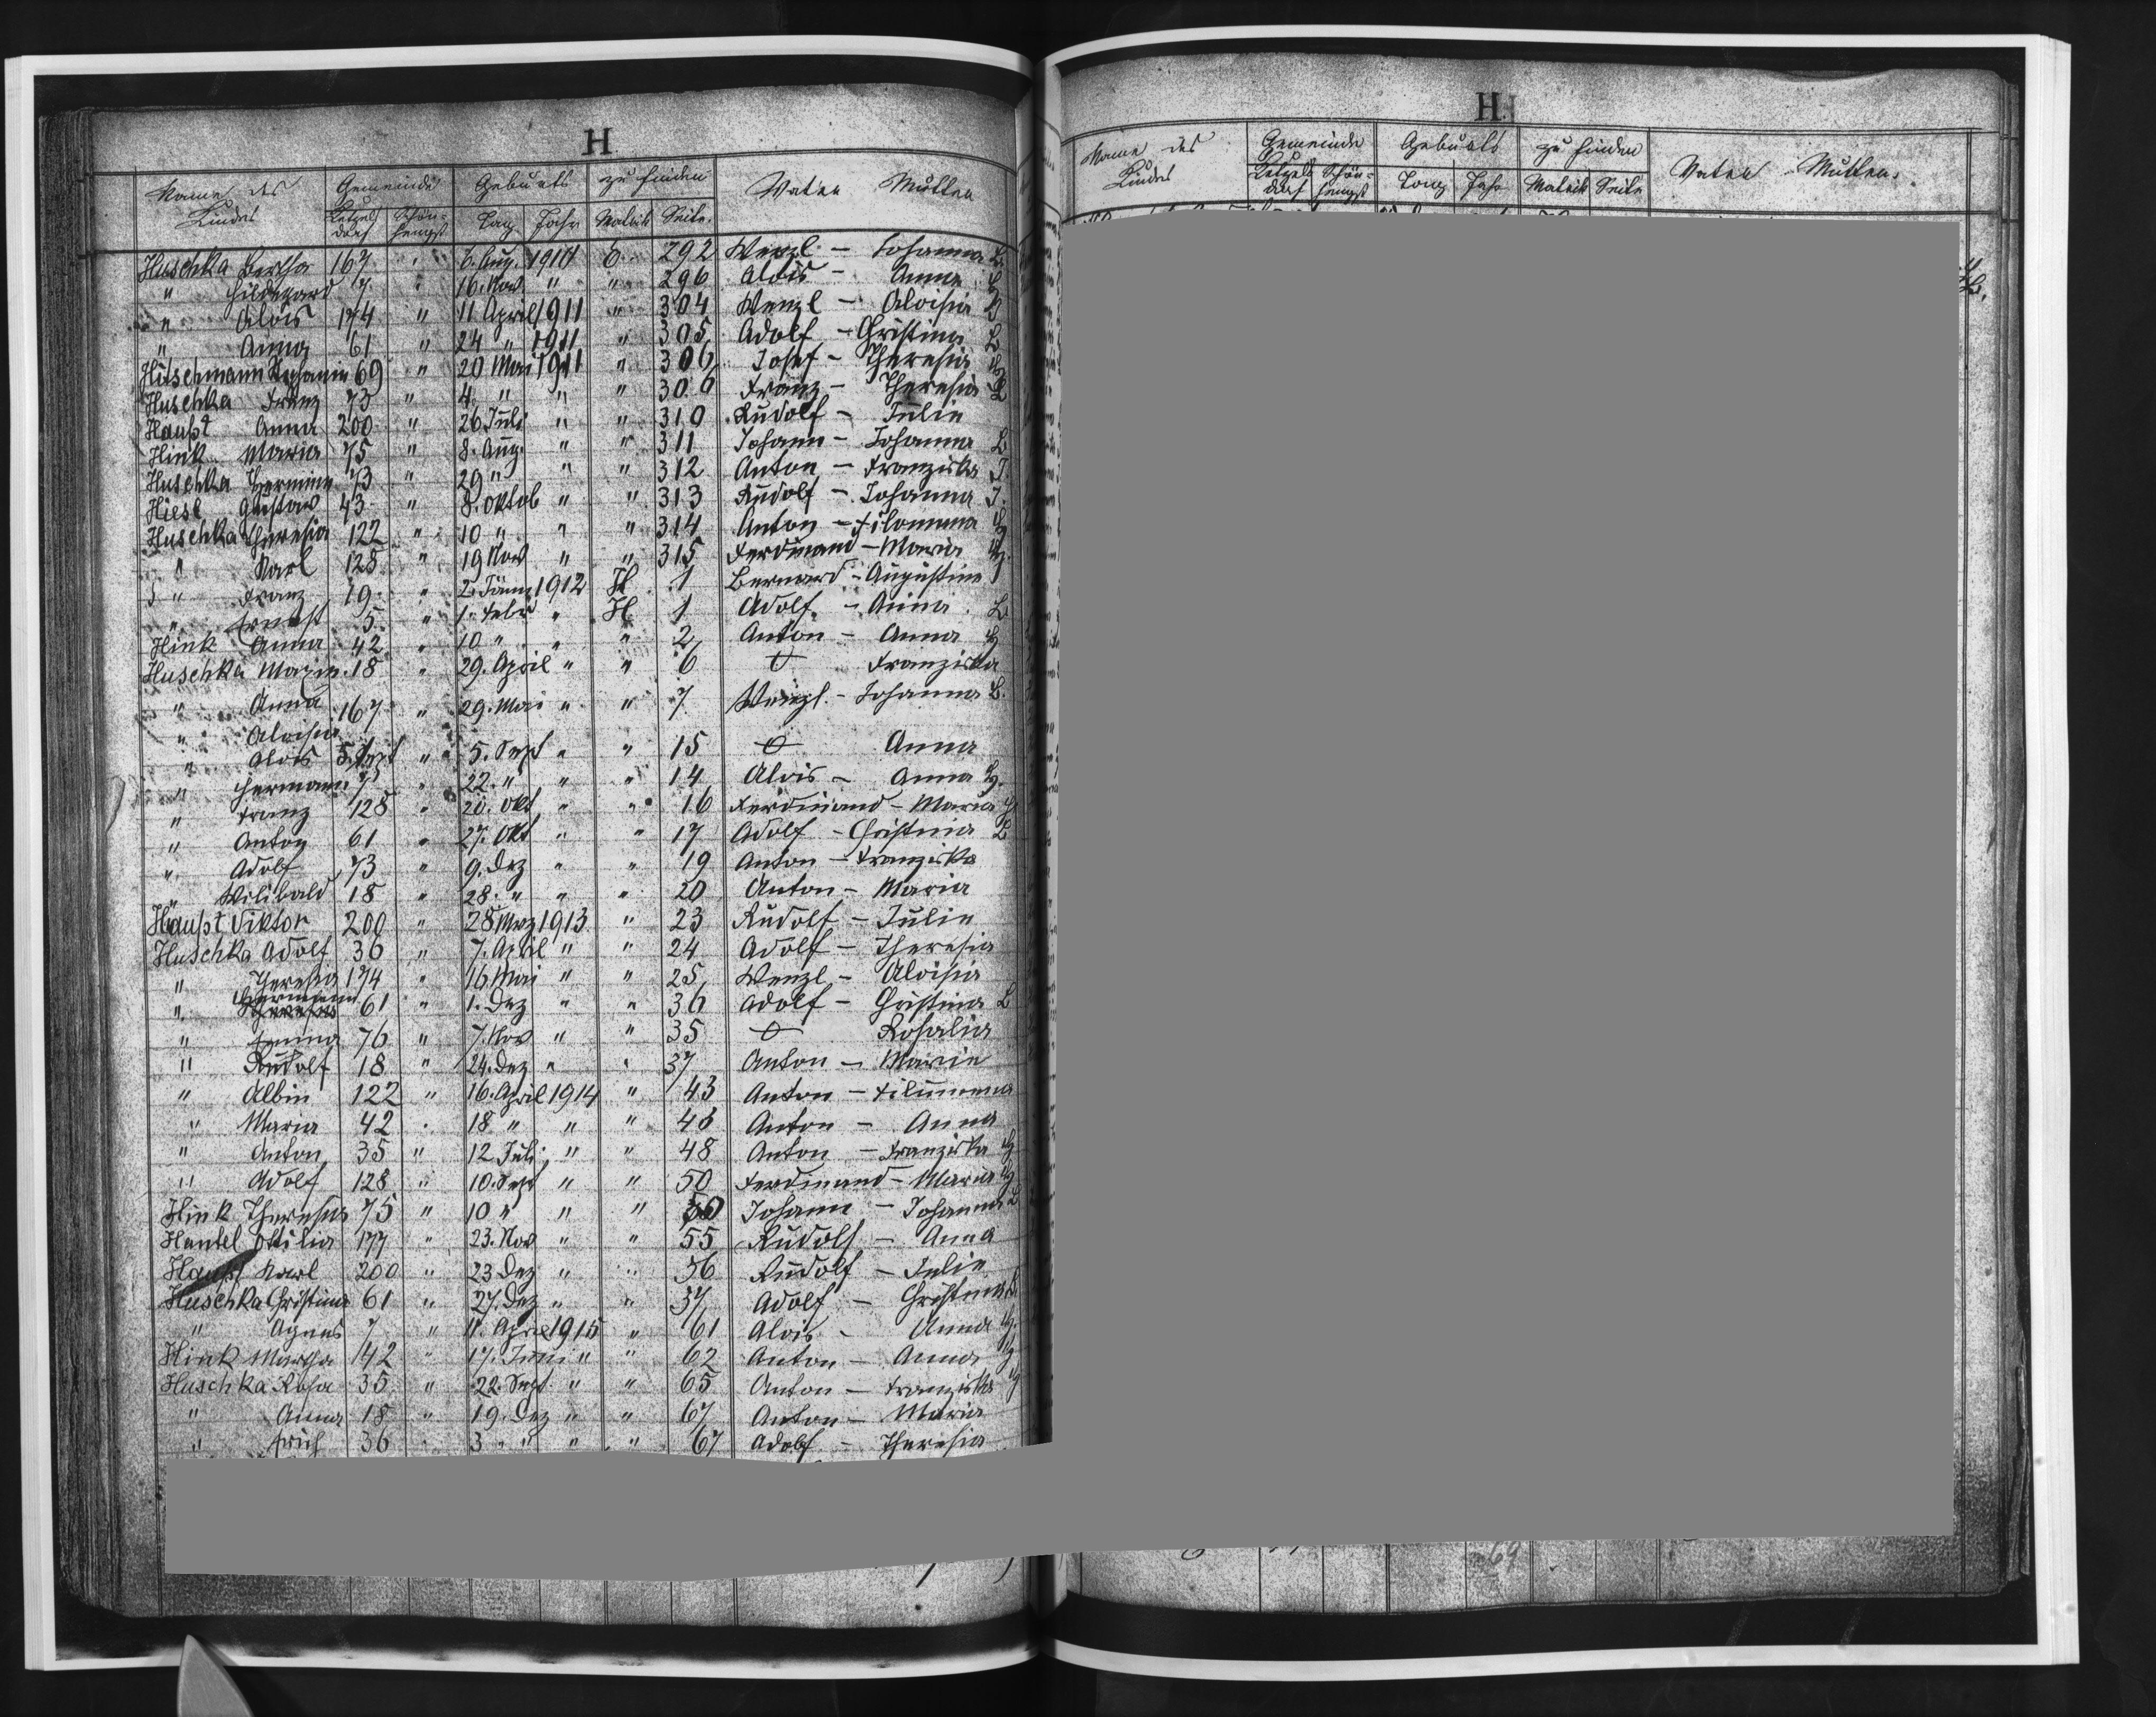 H
Name des Kindes Gemeinde Geburts zu finden Vater Mutter
Ketzelsdorf Schönhengst Tag Jahr Matrik Seite.
Huschka Bertha 167 " 6. Aug. 1910 292 Wenzl - Johanna L.
" Hildegard 7 " 16. Nov. " " 296 Alois - Anna
" Alois 174 " 11 April 1911 " 304 Wenzl - Aloisia
" Anna 61 " 24 " 1911 " 305 Adolf - Christina L
Hütschmann 69 " 20 Mai 1911 " 306 Josef - Theresia
Huschka Franz 73 " 4. " " " 306 Franz - Theresia
Haupt Anna 200 " 26 Juli " " 310 Rudolf - Julie
Hink Maria 75 " 8. Aug. " " 311 Johann - Johanna L.
Huschka Hermine 73 " 29 " " " 312 Anton - Franziska J
Hiesl Gustav 43 " 8. Oktob " " 313 Rudolf - Johanna J.
Huschka Theresia 122 " 10 " " " 314 Anton - Filomena
" Karl 128 " 19 Nov " " 315 Ferdinand - Maria
" Franz 19 " 2. Jänn 1912 H 1 Bernard - Augustine
" Ernst 5. " 1. Febr " H 1 Adolf - Anna L.
Hink Anna 42 " 10 " " " 2 Anton - Anna
Huschka Maxim. 18 " 29. April " " 6 Franziska
" Anna 167 " 29. Mai " " 7 Wenzl - Johanna L.
" Aloisia
" Alois 5. Sept " 5. Sept " " 15 Anna
" Hermann 7 " 22. " " " 14 Alois - Anna
" Franz 128 " 20. Okt " " 16 Ferdinand - Maria
" Anton 61 " 27. Okt " " 17 Adolf - Christina L
" Adolf 73 " 9. Dez " " 19 Anton - Franziska
" Wilibald 18 " 28. " " " 20 Anton - Maria
Haupt Viktor 200 " 28 März 1913 " 23 Rudolf - Julie
Huschka Adolf 36 " 7. April " " 24 Adolf - Theresia
" Theresia 174 " 16 Mai " " 25 Wenzl - Aloisia
" Hermann 61 " 1. Dez " " 36 Adolf - Christina L
" Emma 76 " 7. Nov " " 35 Rosalia
" Rudolf 18 " 24. Dez " " 37 Anton - Marie
" Albin 122 " 16. April 1914 " 43 Anton - Filumena
" Maria 42 " 18 " " " 43 Anton - Anna
" Anton 35 " 12 Juli " " 48 Anton - Franziska
" Adolf 128 " 10. Sept " " 50 Ferdinand - Maria
Hink Theresia 75 " 10 " " " 50 Johann - Johanna L
Hantel Ottilia 177 " 23. Nov " " 55 Rudolf - Anna
Haupt Karl 200 " 23 Dez " " 56 Rudolf - Julie
Huschka Christina 61 " 27. Dez " " 57 Adolf - Christina L
" Agnes 7 " 11. April 1915 " 61 Alois - Anna
Hink Martha 142 " 17. Juni " " 62 Anton - Anna
Huschka Rosa 35 " 22. Sept. " " 65 Anton - Franziska
" Anna 18 " 19. Dez " " 67 Anton - Maria
" Erich 36 " 3 " " " 67 Adolf - Theresia
H.
Name des Kindes Gemeinde Geburts zu finden Vater Mutter.
Ketzelsdorf Schönhengst Tag Jahr Matrik Seite
69